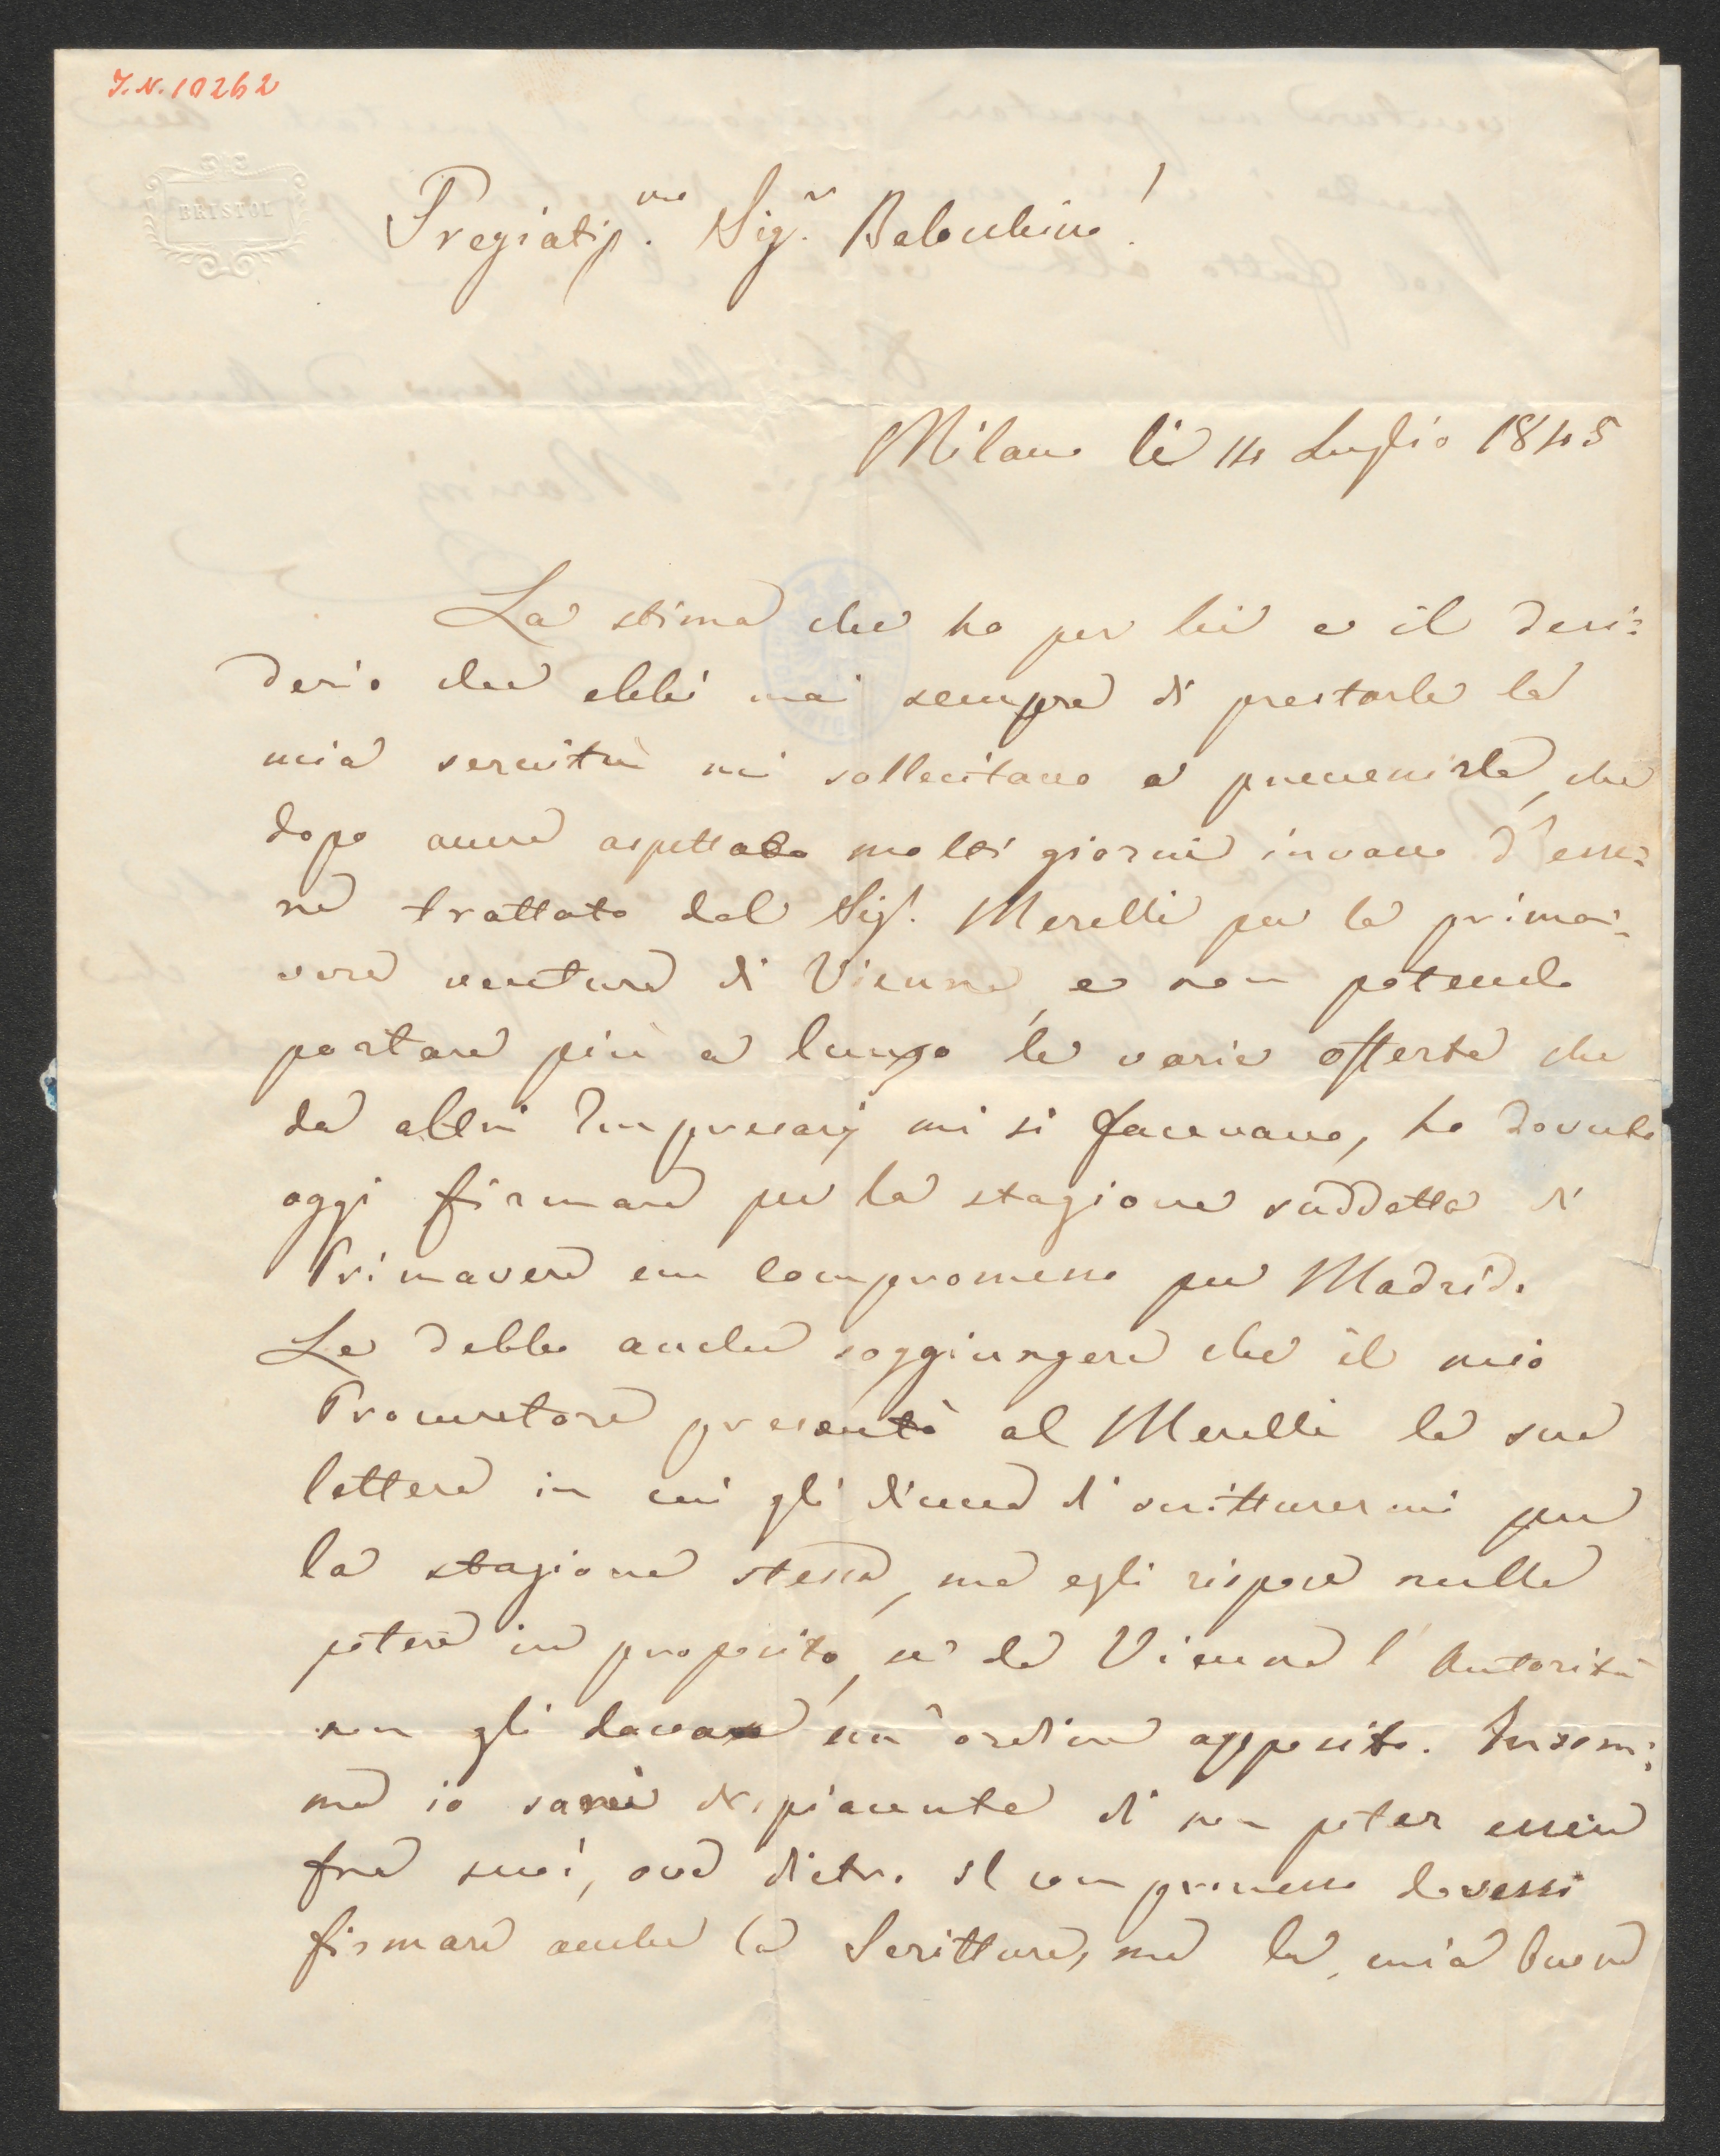 I.N. 10262
BRISTOL
Pregiatiss.mo Sig.r Balochino!
Milano li 14 Luglio 1845
La stima che ho per lei e il desi=
derio che ebbi mai sempre di prestarle la
mia servitù mi sollecitano a prevenirla, che
dopo avere aspettato molti giorni invano d'esse=
re trattato dal Sig.r Merelli per la prima=
vera ventura di Vienna, e non potendo
portare più a lungo le varie offerte che
da altri Impresarj mi si facevano, ho dovuto
oggi firmare per la stagione suddetta di
Primavera un compromesso per Madrid.
Le debbo anche soggiungere che il mio
Procuratore presentò al Merelli la sua
lettera in cui gli diceva di scritturarmi per
la stagione stessa, ma egli rispose nulla
potere in proposito, se da Vienna l'Autorità
non gli dava un'ordine apposito. Insom=
ma io sarei dispiacente di non poter essere
fra suoi, ove dietro il compromesso dovessi
firmare anche la Scrittura, ma la mia buona